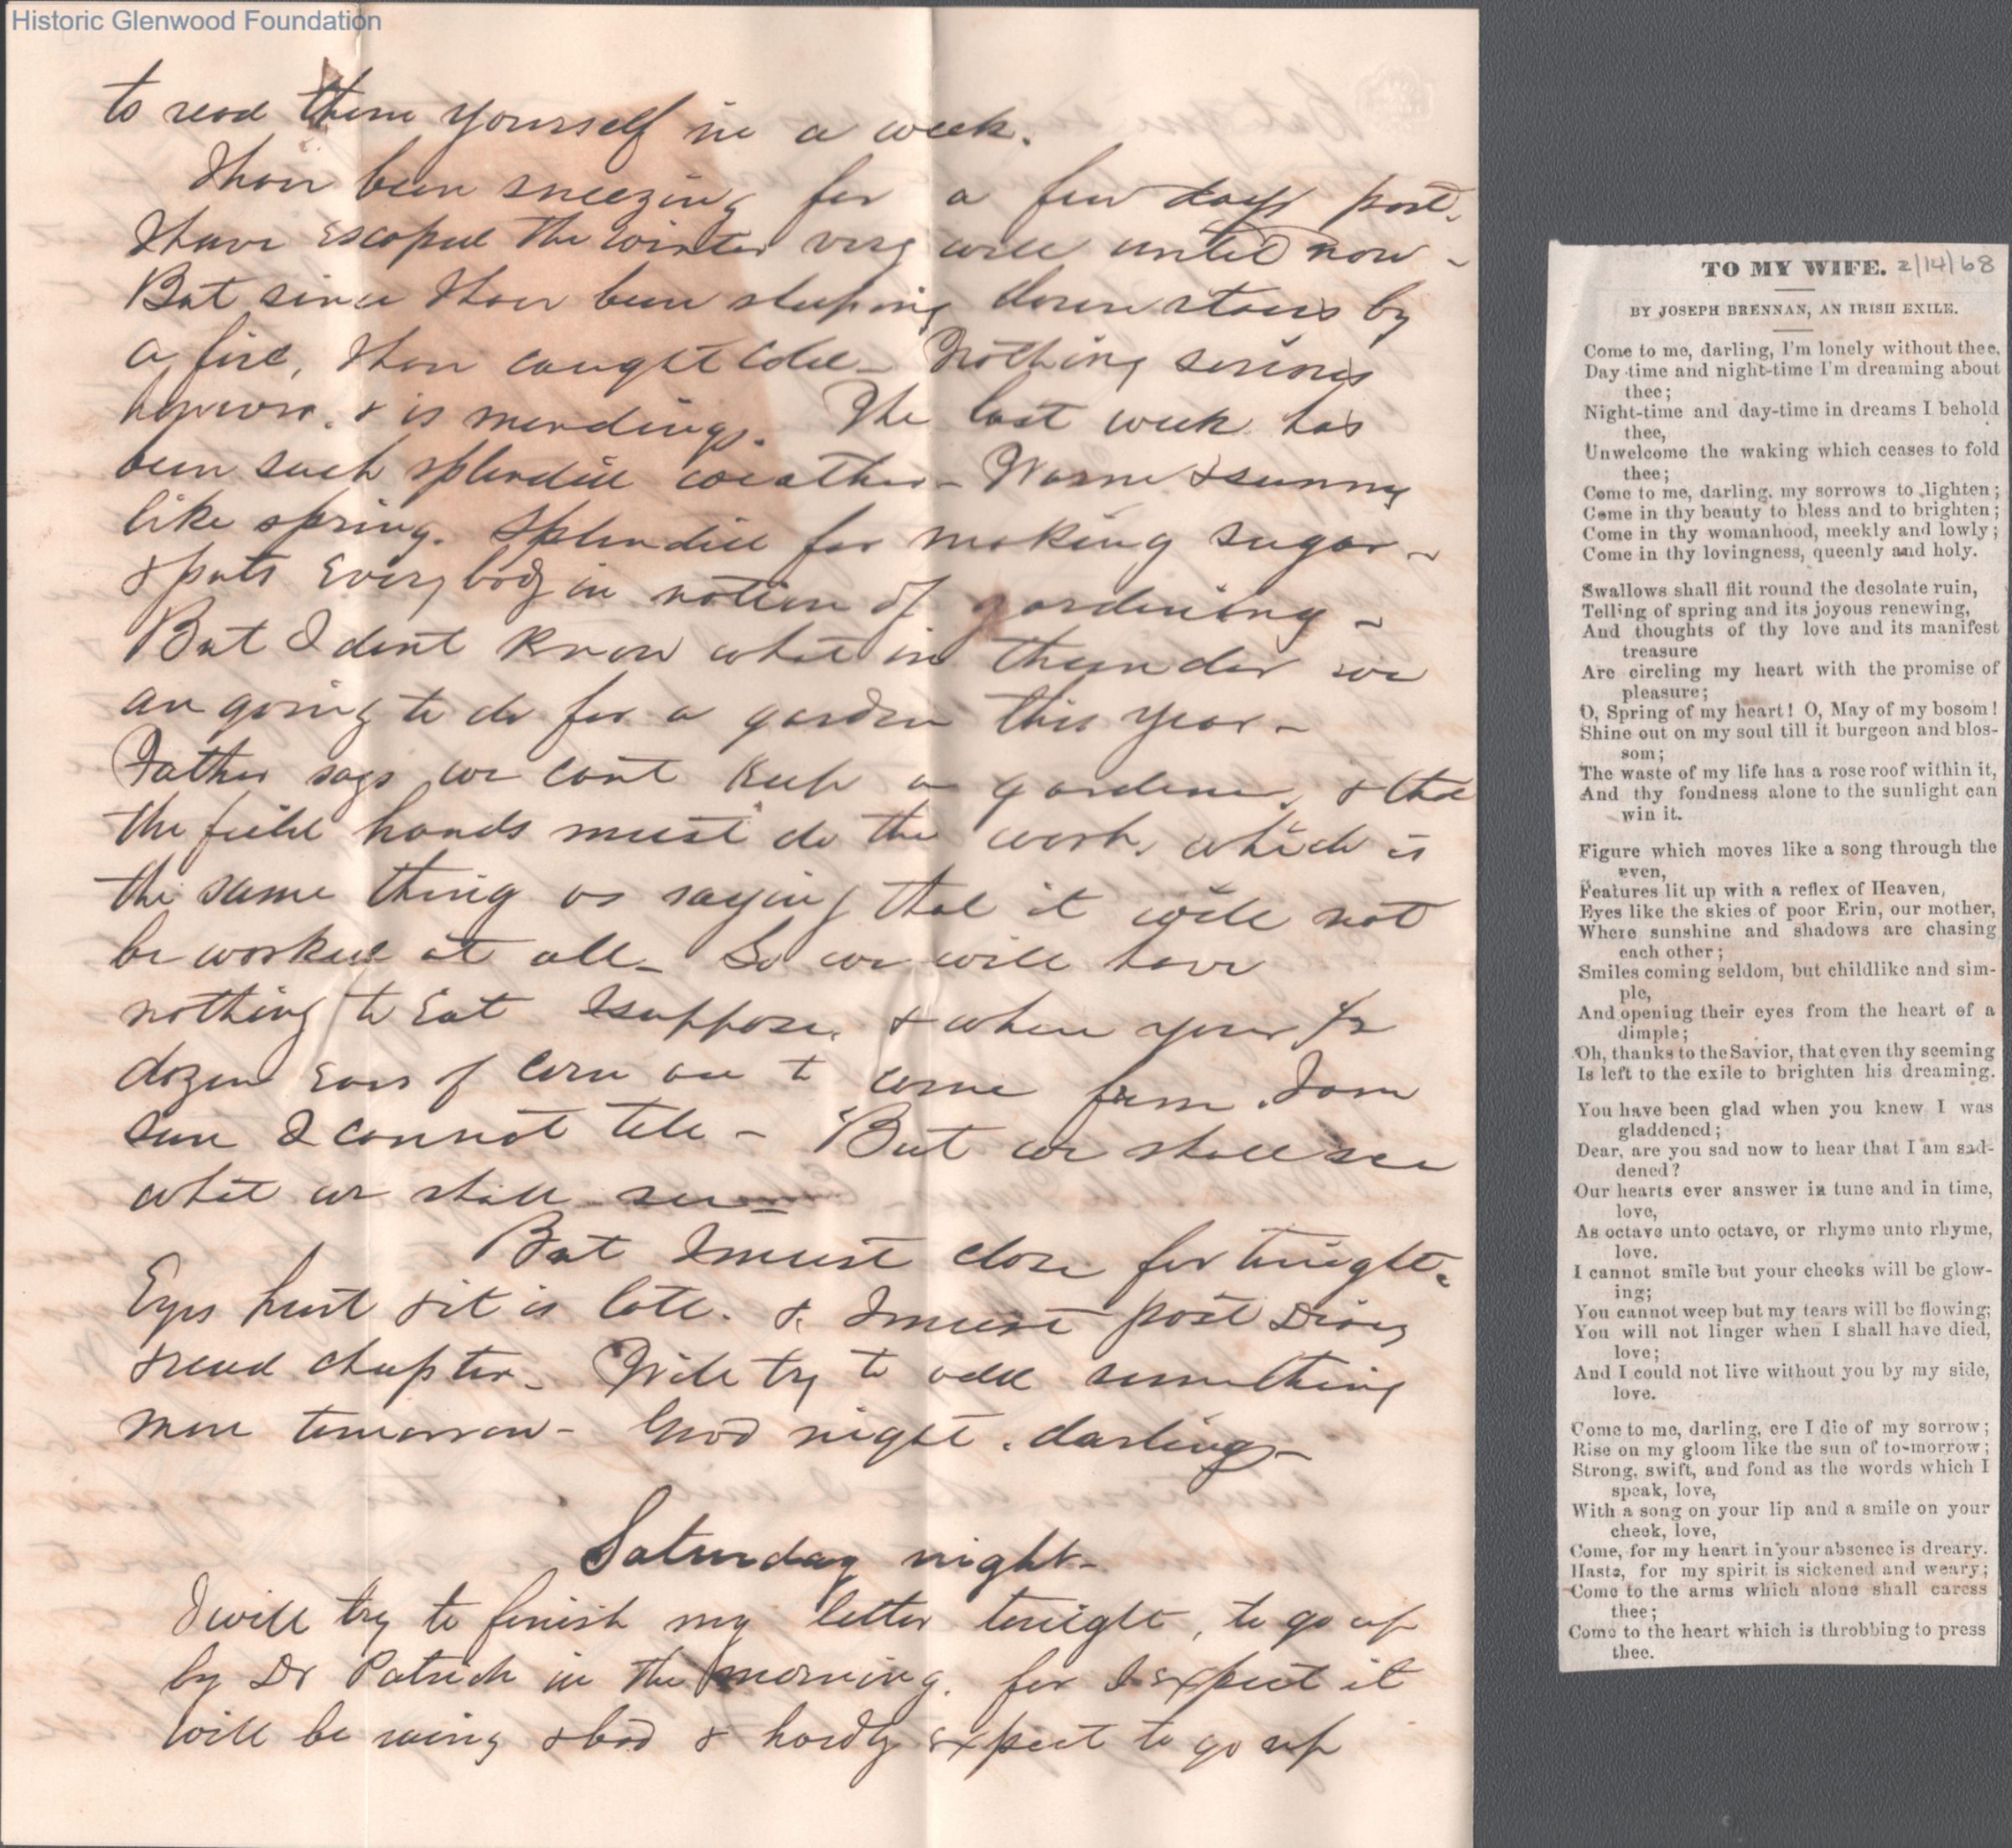 Historic Glenwood Foundation
to read them yourself in a week.
I have been sneezing for a few days past.
I have escaped the winter very well until now -
But since I have been sleeping down stairs by
a fire, I have caught cold - Nothing serious
however, & is mending. The last week has
been such splendid weather - Warm & sunny
like spring. Splendid for making sugar -
& puts Every body in notion of gardening -
But I dont know what in thunder we
are going to do for a garden this year -
Father says we cant keep a gardener, & that
the field hands must do the work, which is
the same thing as saying that it will not
be worked at all - So we will have
nothing to Eat I suppose, & where your 1/2
dozen Ears of corn are to come from, I am
sure I cannot tell - But we shall see
what we shall see -
But I must close for tonight -
Eyes hurt & it is late. & I must post Diary
& read chapter - Will try to add something
more tomorrow - Good night, darling -
Saturday night -
I will try to finish my letter tonight, to go up
by Dr Patrick in the morning, for I expect it
will be rainy & bad & hardly expect to go up
TO MY WIFE. 2/14/68
BY JOSEPH BRENNAN, AN IRISH EXILE.
Come to me, darling, I'm lonely without thee,
Day-time and night-time I'm dreaming about
thee;
Night-time and day-time in dreams I behold
thee,
Unwelcome the waking which ceases to fold
thee;
Come to me, darling. my sorrows to lighten;
Come in thy beauty to bless and to brighten;
Come in thy womanhood, meekly and lowly;
Come in thy lovingness, queenly and holy.
Swallows shall flit round the desolate ruin,
Telling of spring and its joyous renewing,
And thoughts of thy love and its manifest
treasure
Are circling my heart with the promise of
pleasure;
O, Spring of my heart! O, May of my bosom!
Shine out on my soul till it burgeon and blos-
som;
The waste of my life has a rose roof within it,
And thy fondness alone to the sunlight can
win it.
Figure which moves like a song through the
even,
Features lit up with a reflex of Heaven,
Eyes like the skies of poor Erin, our mother,
Where sunshine and shadows are chasing
each other;
Smiles coming seldom, but childlike and sim-
ple,
And opening their eyes from the heart of a
dimple;
Oh, thanks to the Savior, that even thy seeming
Is left to the exile to brighten his dreaming.
You have been glad when you knew I was
gladdened;
Dear, are you sad now to hear that I am sad-
dened?
Our hearts ever answer in tune and in time,
love,
As octave unto octave, or rhyme unto rhyme,
love.
I cannot smile but your cheeks will be glow-
ing;
You cannot weep but my tears will be flowing;
You will not linger when I shall have died,
love;
And I could not live without you by my side,
love.
Come to me, darling, ere I die of my sorrow;
Rise on my gloom like the sun of to-morrow;
Strong, swift, and fond as the words which I
speak, love,
With a song on your lip and a smile on your
cheek, love,
Come, for my heart in your absence is dreary.
Haste, for my spirit is sickened and weary;
Come to the arms which alone shall caress
thee;
Come to the heart which is throbbing to press
thee.